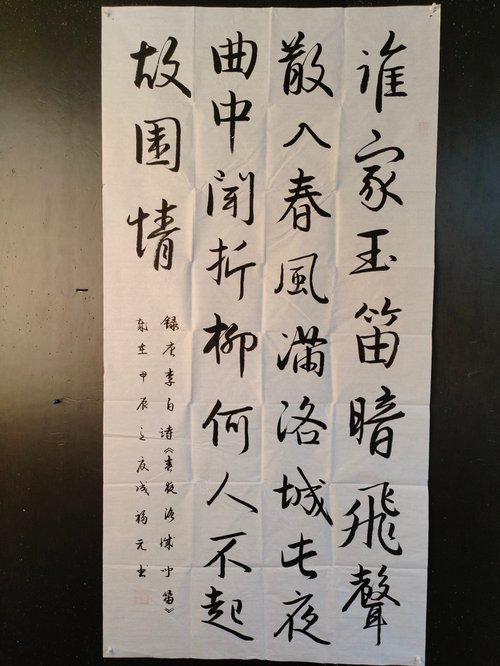 谁家玉笛暗飛聲
散入春風滿洛城此夜
曲中闻折柳何人不起
故園情
録唐李白诗《春夜洛城闻笛》
岁在甲辰之夏福元书